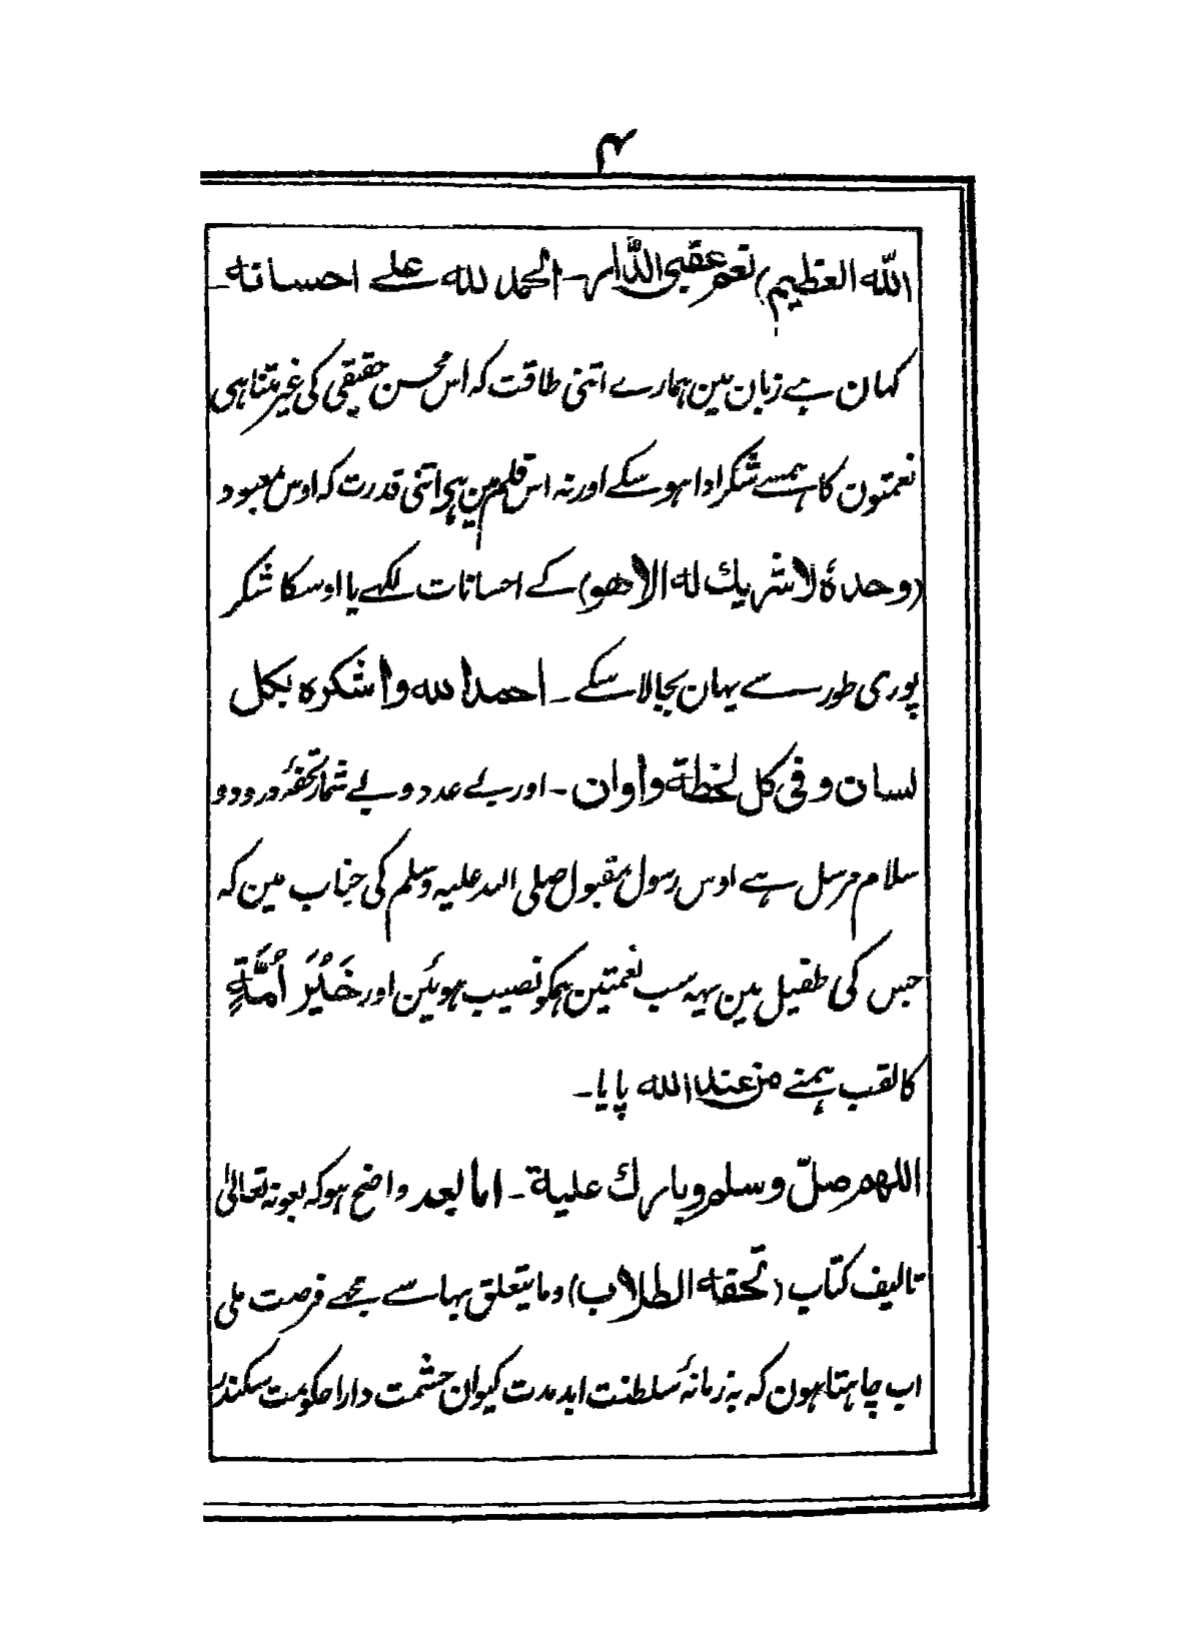 ۴
اللّٰه العظیم) نعم عقبی الدّار۔ الحمد لله علے احسانه۔
کہان ہے زبان مین ہمارے اتنی طاقت کہ اس محسن حقیقی کی غیر متناہی
نعمتون کا ہمسے شکر ادا ہو سکے اور نہ اس قلم مین ہی اتنی قدرت کہ اوس معبود
(وحدہٗ لا شریك له الا هو) کے احسانات لکہے یا اوسکا شکر
پوری طور سے یہان بجا لا سکے۔ احمد الله واشکره بکل
لسان وفی کل لحظة واوان۔ اور بے عدد و بے شمار تحفۂ درود و
سلام مرسل ہے اوس رسول مقبول صلی اللہ علیہ وسلم کی جناب مین کہ
جس کی طفیل مین یہہ سب نعمتین ہمکو نصیب ہوئین اور خَیْرَ اُمَّةٍ
کا لقب ہمنے من عند الله پایا۔
اللهم صلّ وسلم وبارك علیة۔ اما بعد واضح ہو کہ بعونہ تعالیٰ
تالیف کتاب (تحفه الطلاب) وما یتعلق بہا سے مجہے فرصت ملی
اب چاہتا ہون کہ بہ زمانۂ سلطنت ابد مدت کیوان حشمت دارا حکومت سکندر